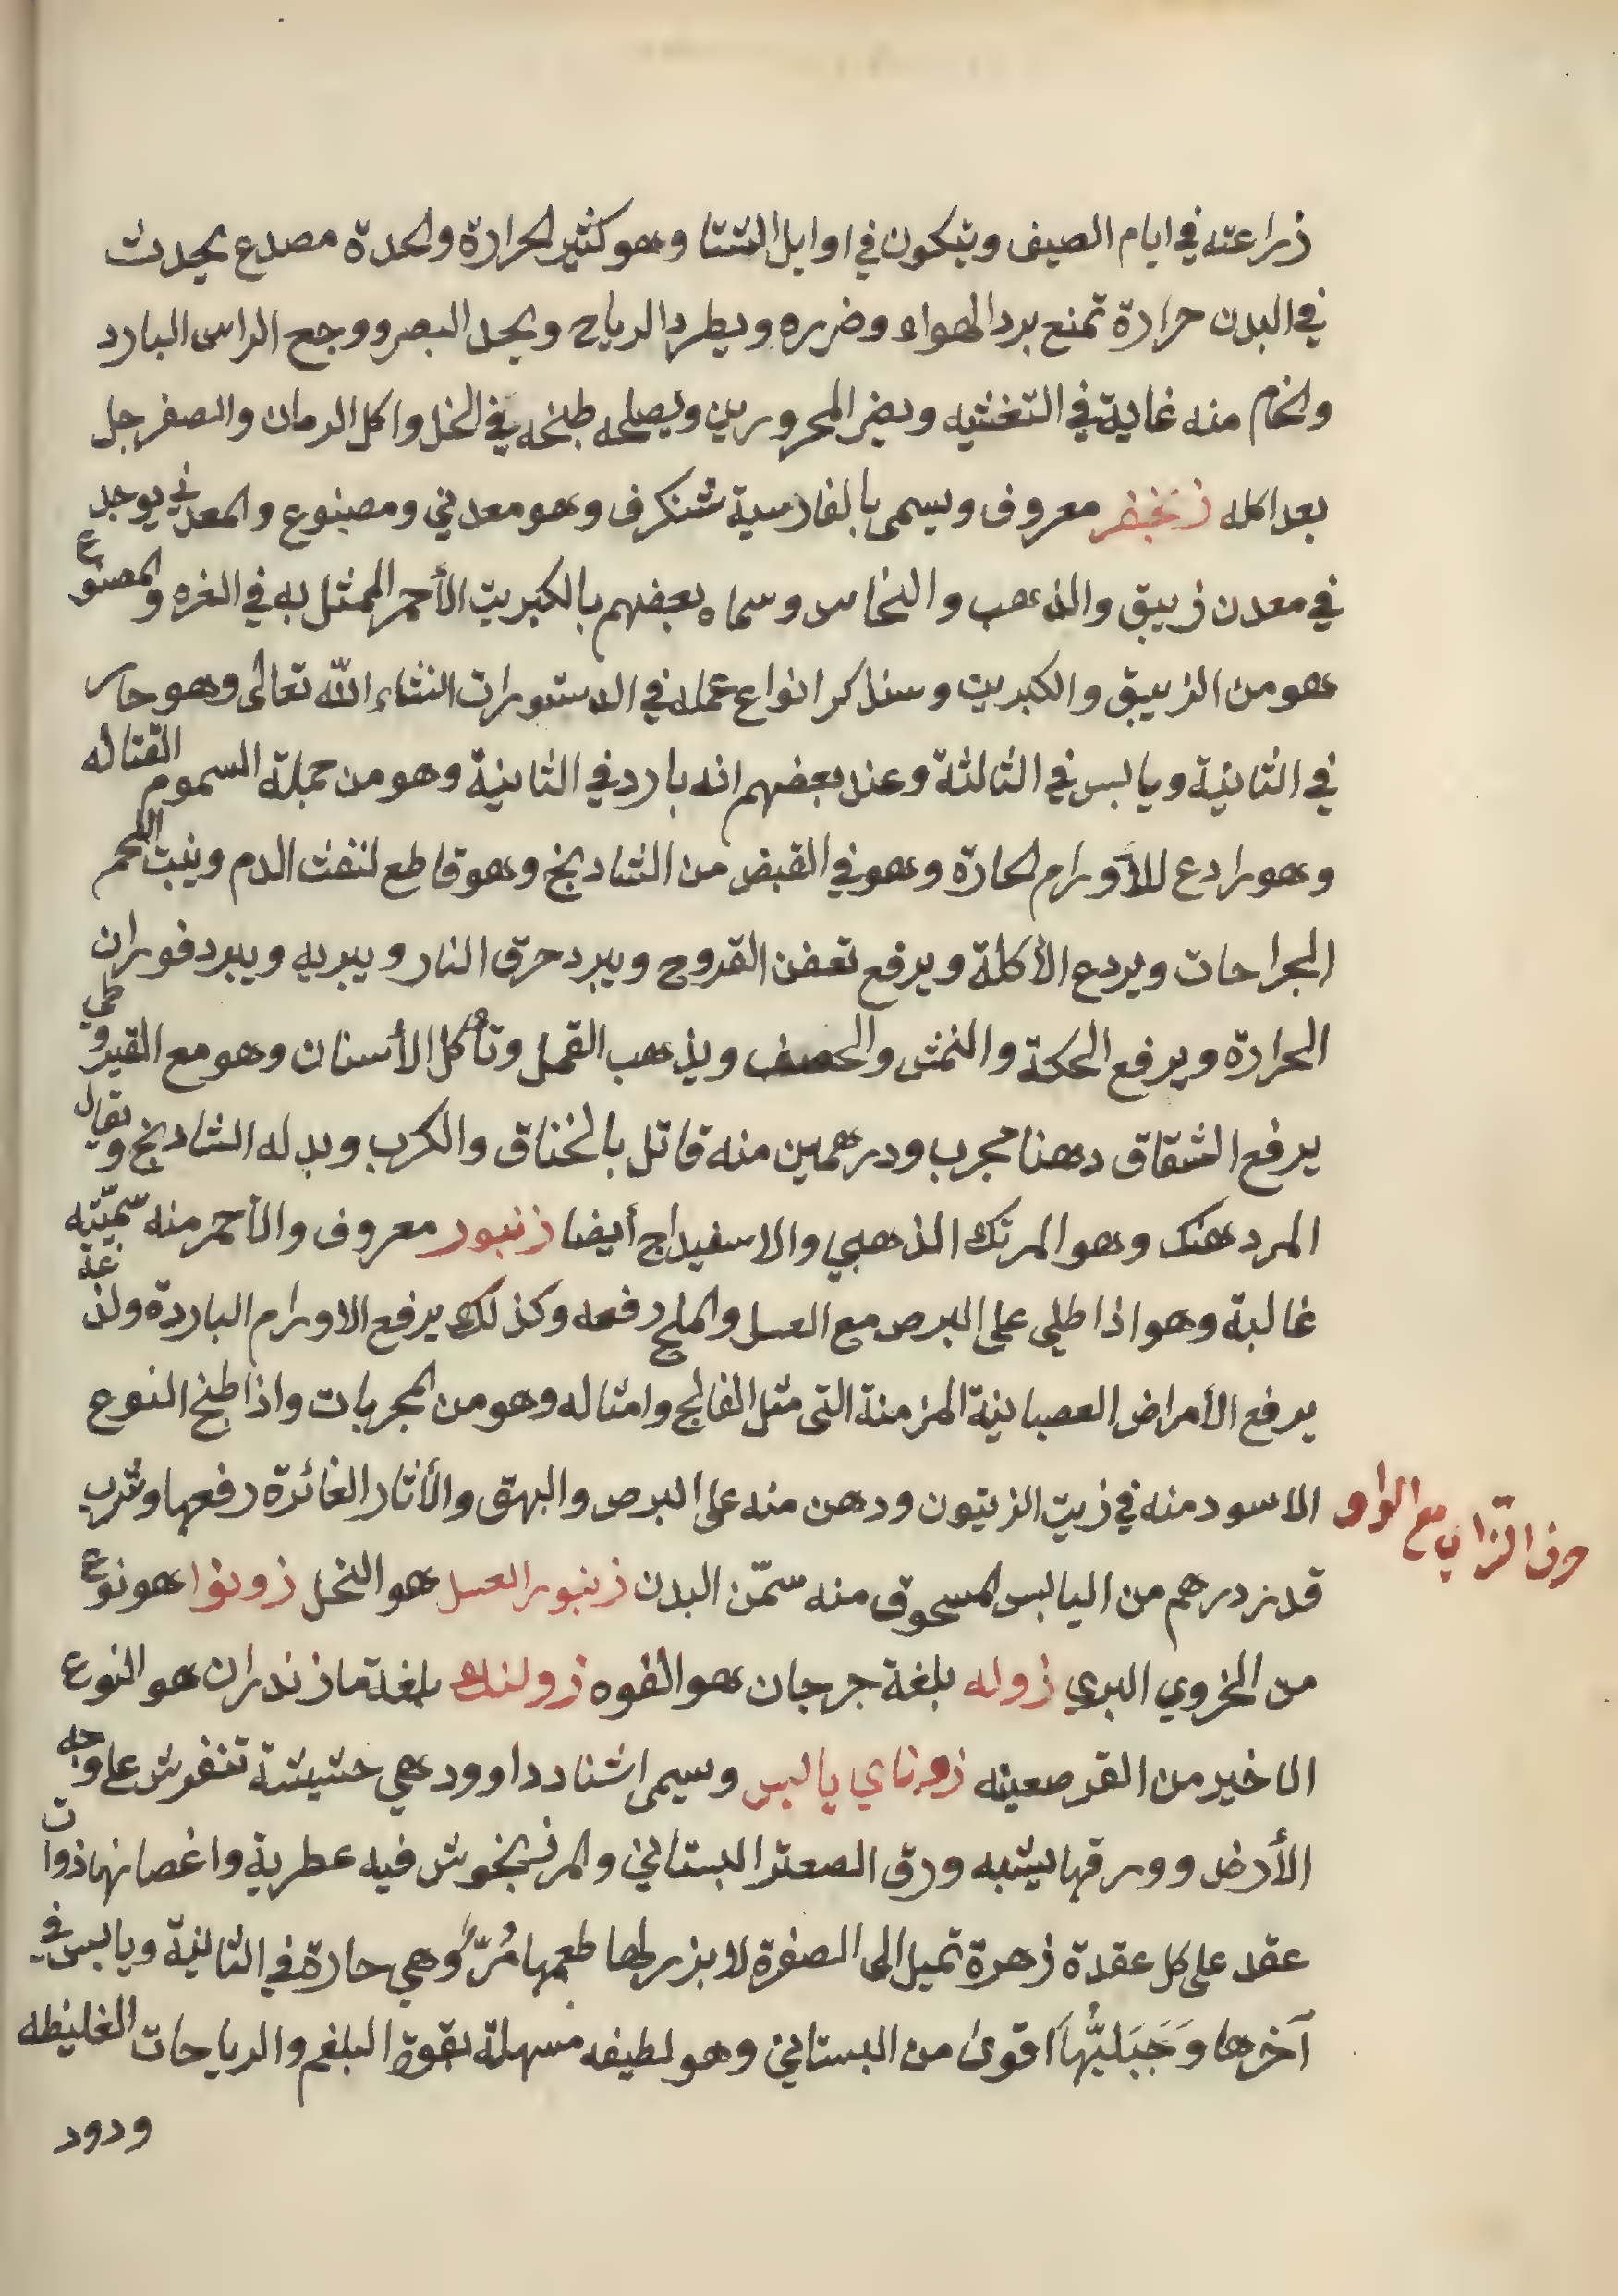 زراعته في ايام الصيف ويتكون في اوايل الشتا وهو كثير الحرارة والحدة مصدع يحدث
في البدن حرارة تمنع برد الهواء وضرره ويطرد الرياح ويحد البصر ووجع الراس البارد
والخام منه غاية في التغثيه ويضر المحرورين ويصلحه طبخه في الخل واكل الرمان والصفرجل
بعد اكله زنجفر معروف ويسمى بالفارسية شنكرف وهو معدني ومصنوع والمعدني يوجد
في معدن زيبق والذهب والنحاس وسماه بعضهم بالكبريت الأحمر الممثل به في الغره والمصنوع
هو من الزيبق والكبريت وسنذكر انواع عمله في الدستورات انشاء الله تعالى وهو حار
في الثانية ويابس في الثالثة وعند بعضهم انه بارد في الثانية وهو من جملة السموم القتاله
وهو رادع للأورام الحارة وهو في القبض من الشاديخ وهو قاطع لنفث الدم وينبت اللحم
الجراحات ويردع الأكلة ويرفع تعفن القروح ويبرد حرق النار ويبريه ويبرد فوران
الحرارة ويرفع الحكة والنمش والحصف ويذهب القمل وتأكل الأسنان وهو مع القيروطي
يرفع الشقاق دهنا مجرب ودرهمين منه قاتل بالخناق والكرب وبدله الشاديخ ويقال
المردهنك وهو المرتك الذهبي والاسفيداج أيضا زنبور معروف والأحمر منه سمّيته
غالبة وهو اذا طلي على البرص مع العسل والملح رفعه وكذلك يرفع الاورام الباردة ولذغة
يرفع الأمراض العصبانية المزمنة التى مثل الفالج وامثاله وهو من المجربات واذا طبخ النوع
الاسود منه في زيت الزيتون ودهن منه على البرص والبهق والأثار الغائرة رفعها وشرب
حرف الزاي مع الواو
قدر درهم من اليابس المسحوق منه سمّن البدن زنبور العسل هو النحل زونوا هو نوع
من الخروي البري زوله بلغة جرجان هو الفوه زولنك بلغة مازندران هو النوع
الاخير من القرصعينه زوناي يابس ويسمى اشنادداوود هي حشيشة تنفرش على وجه
الأرض وورقها يشبه ورق الصعتر البستاني والمرزنجوش فيه عطرية واغصانها ذوات
عقد على كل عقدة زهرة تميل الى الصفرة لا بزر لها طعمها مُرّ وهي حارة في الثانية ويابس في
آخرها وَجَبَليُّها اقوى من البستاني وهو لطيفه مسهلة بقوة البلغم والرياحات الغليظه
ودود